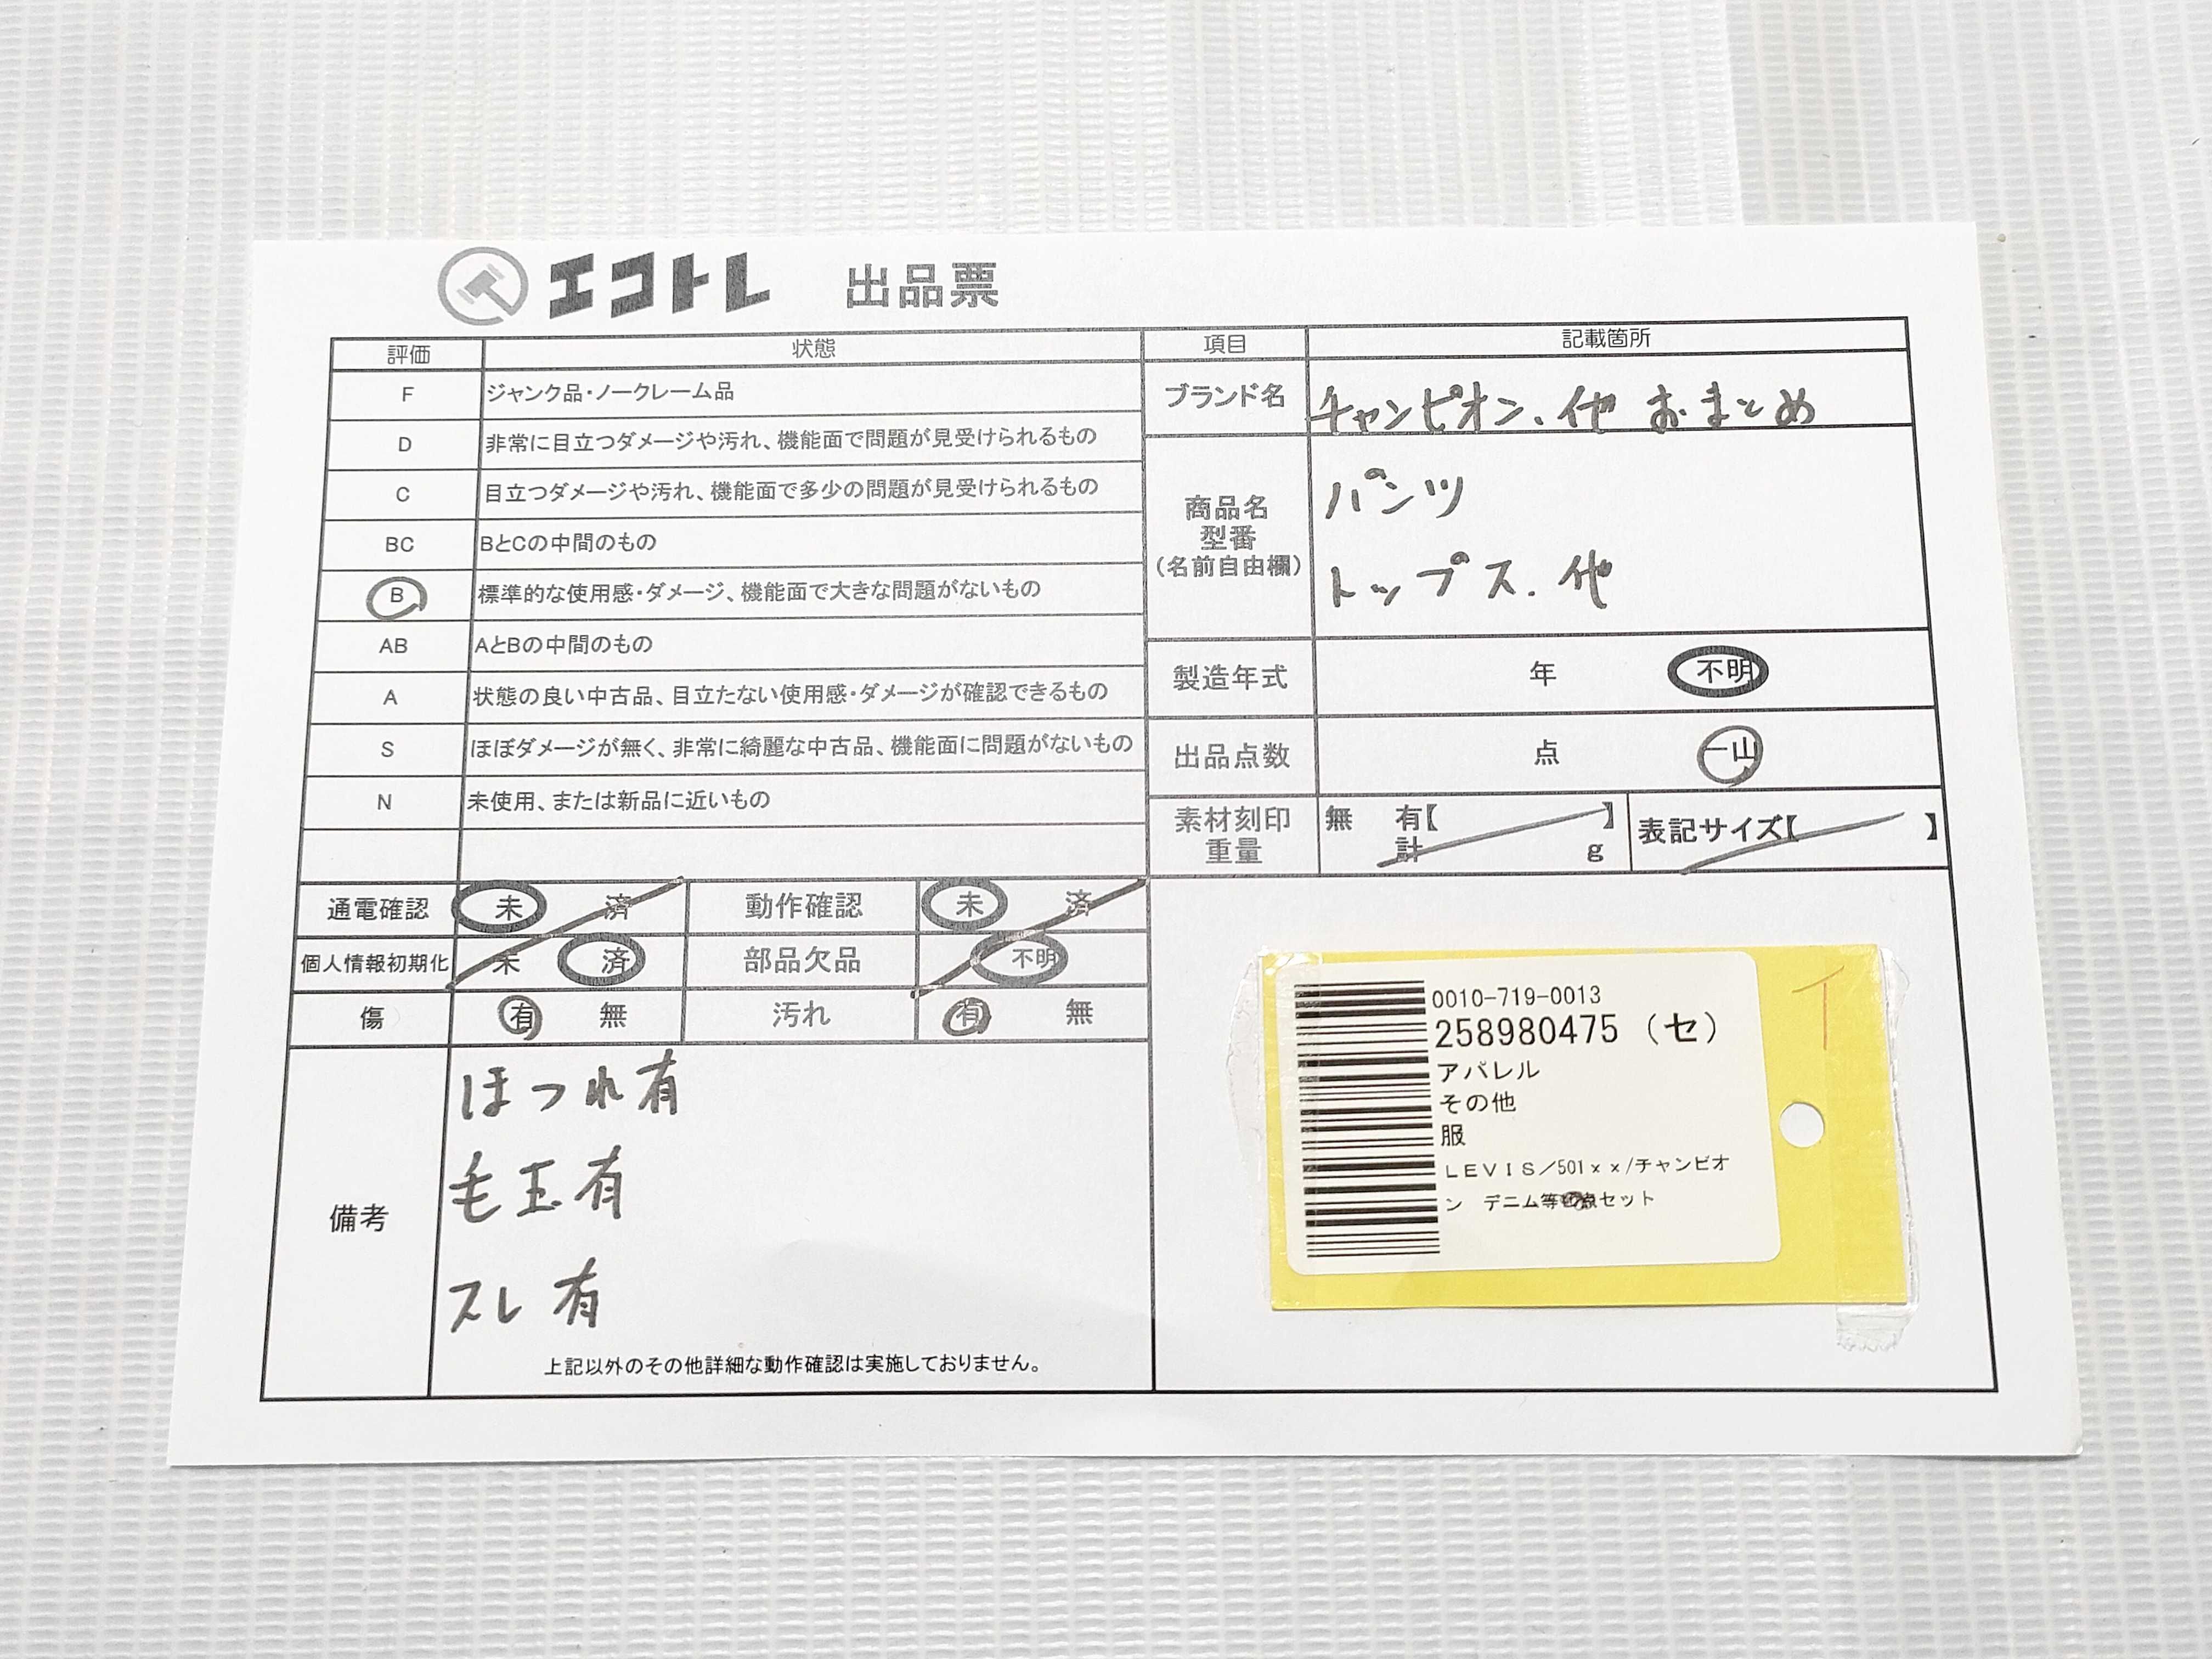 エコトレ 出品票
評価 状態
F ジャンク品・ノークレーム品
D 非常に目立つダメージや汚れ、機能面で問題が見受けられるもの
C 目立つダメージや汚れ、機能面で多少の問題が見受けられるもの
BC BとCの中間のもの
B 標準的な使用感・ダメージ、機能面で大きな問題がないもの
AB AとBの中間のもの
A 状態の良い中古品、目立たない使用感・ダメージが確認できるもの
S ほぼダメージが無く、非常に綺麗な中古品、機能面に問題がないもの
N 未使用、または新品に近いもの
項目 記載箇所
ブランド名 チャンピオン、他 おまとめ
商品名
型番
(名前自由欄)
パンツ
トップス、他
製造年式 年 不明
出品点数 点 一山
素材刻印 無 有【 】 表記サイズ【 】
重量 計 g
通電確認 未 済 動作確認 未 済
個人情報初期化 未 済 部品欠品 不明
傷 有 無 汚れ 有 無
備考
ほつれ有
毛玉有
スレ有
上記以外のその他詳細な動作確認は実施しておりません。
0010-719-0013
258980475 (セ)
アパレル
その他
服
LEVIS/501xx/チャンピオ
ン デニム等 点セット
イ